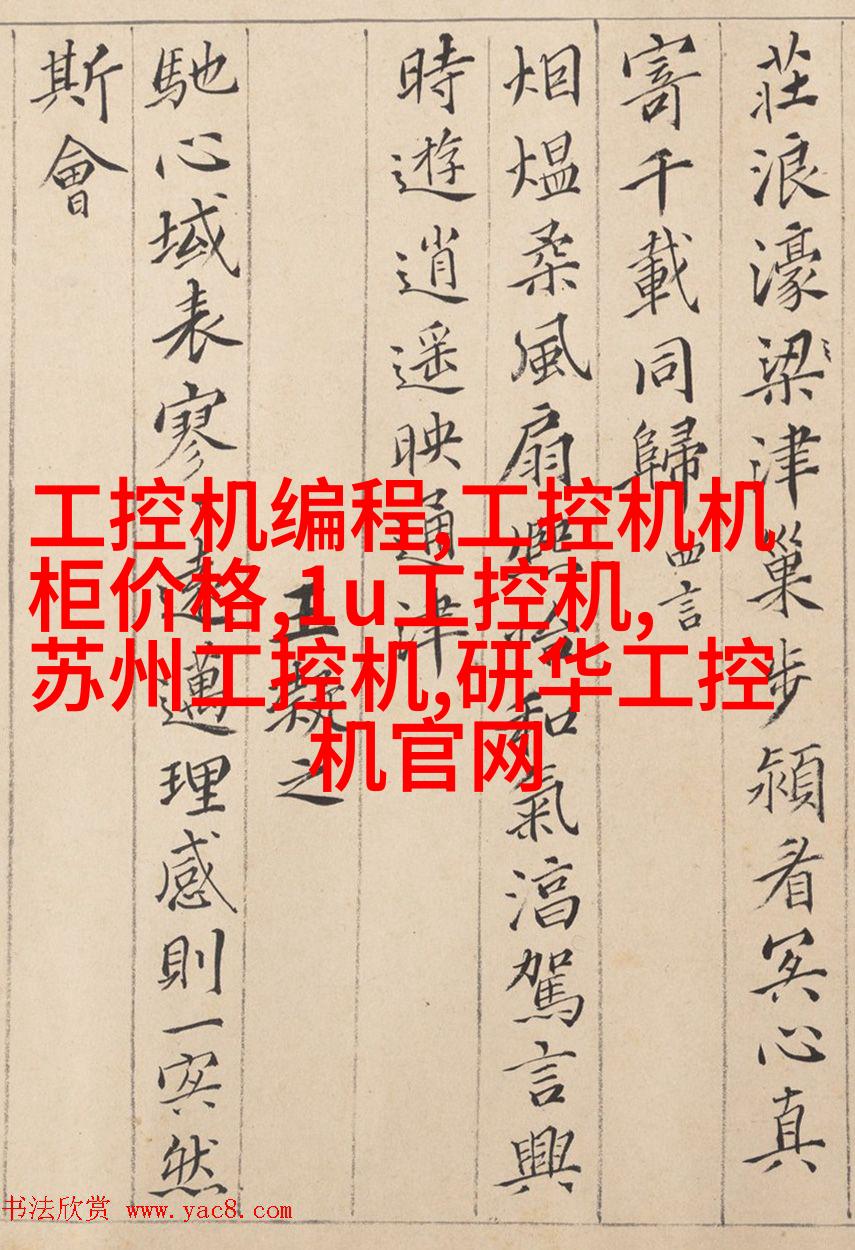 莊浪濠梁津巢步潁看冥心真
寄千載同歸 四言
烟熅柔風扇熙怡和氣湻駕言興
時遊逍遥映通津
王凝之
馳心域表寥〻遠邁理感則一冥然
斯會
工控机编程,工控机机
柜价格,1u工控机,
苏州工控机,研华工控
机官网
书法欣赏 www.yac8.com